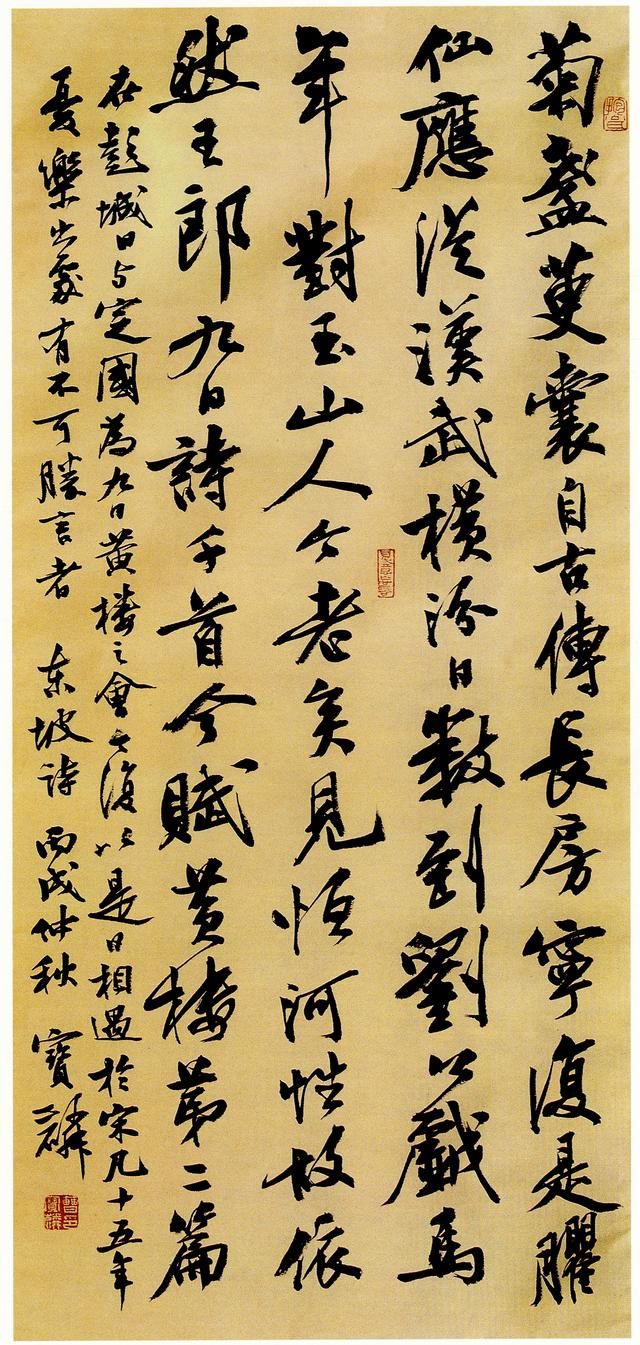 菊盞萸囊自古傳長房寧復是臞
仙應從漢武橫汾日數到劉公戲馬
年對玉山人今老矣見恒河性故依
然王郎九日詩千首今賦黃樓第二篇
在彭城日与定國為九日黃樓之會今復以是日相遇於宋凡十五年
憂樂出處有不可勝言者 東坡詩 丙戌仲秋 寶麟
曹印寶麟